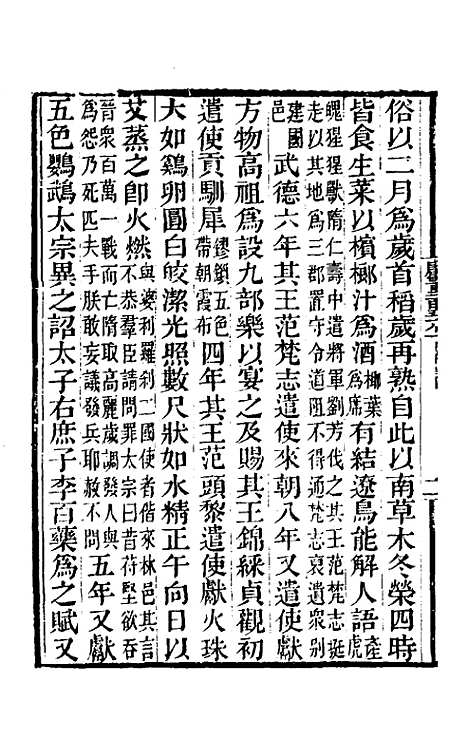 俗以二月爲歲首稻歲再熟自此以南草木冬榮四時
皆食生菜以檳榔汁爲酒椰葉爲席有結遼鳥能解人語產虎
魄猩猩獸隋仁壽中遣將軍劉芳伐之其王范梵志挺
走以其地爲三郡置守令道阻不得通梵志裒遺衆別
建國邑武德六年其王范梵志遣使來朝八年又遣使獻
方物高祖爲設九部樂以宴之及賜其王錦綵貞觀初
遣使貢馴犀鏐鎖五色帶朝霞布四年其王范頭黎遣使獻火珠
大如鷄卵圓白皎潔光照數尺狀如水精正午向日以
艾蒸之卽火燃與婆利羅刹二國使者偕來林邑其言不恭羣臣請問罪太宗曰昔苻堅欲吞
晉衆百萬一戰而亡隋取高麗歲調發人與爲怨乃死匹夫手朕敢妄議發兵耶赦不問五年又獻
五色鸚鵡太宗異之詔太子右庶子李百藥爲之賦又